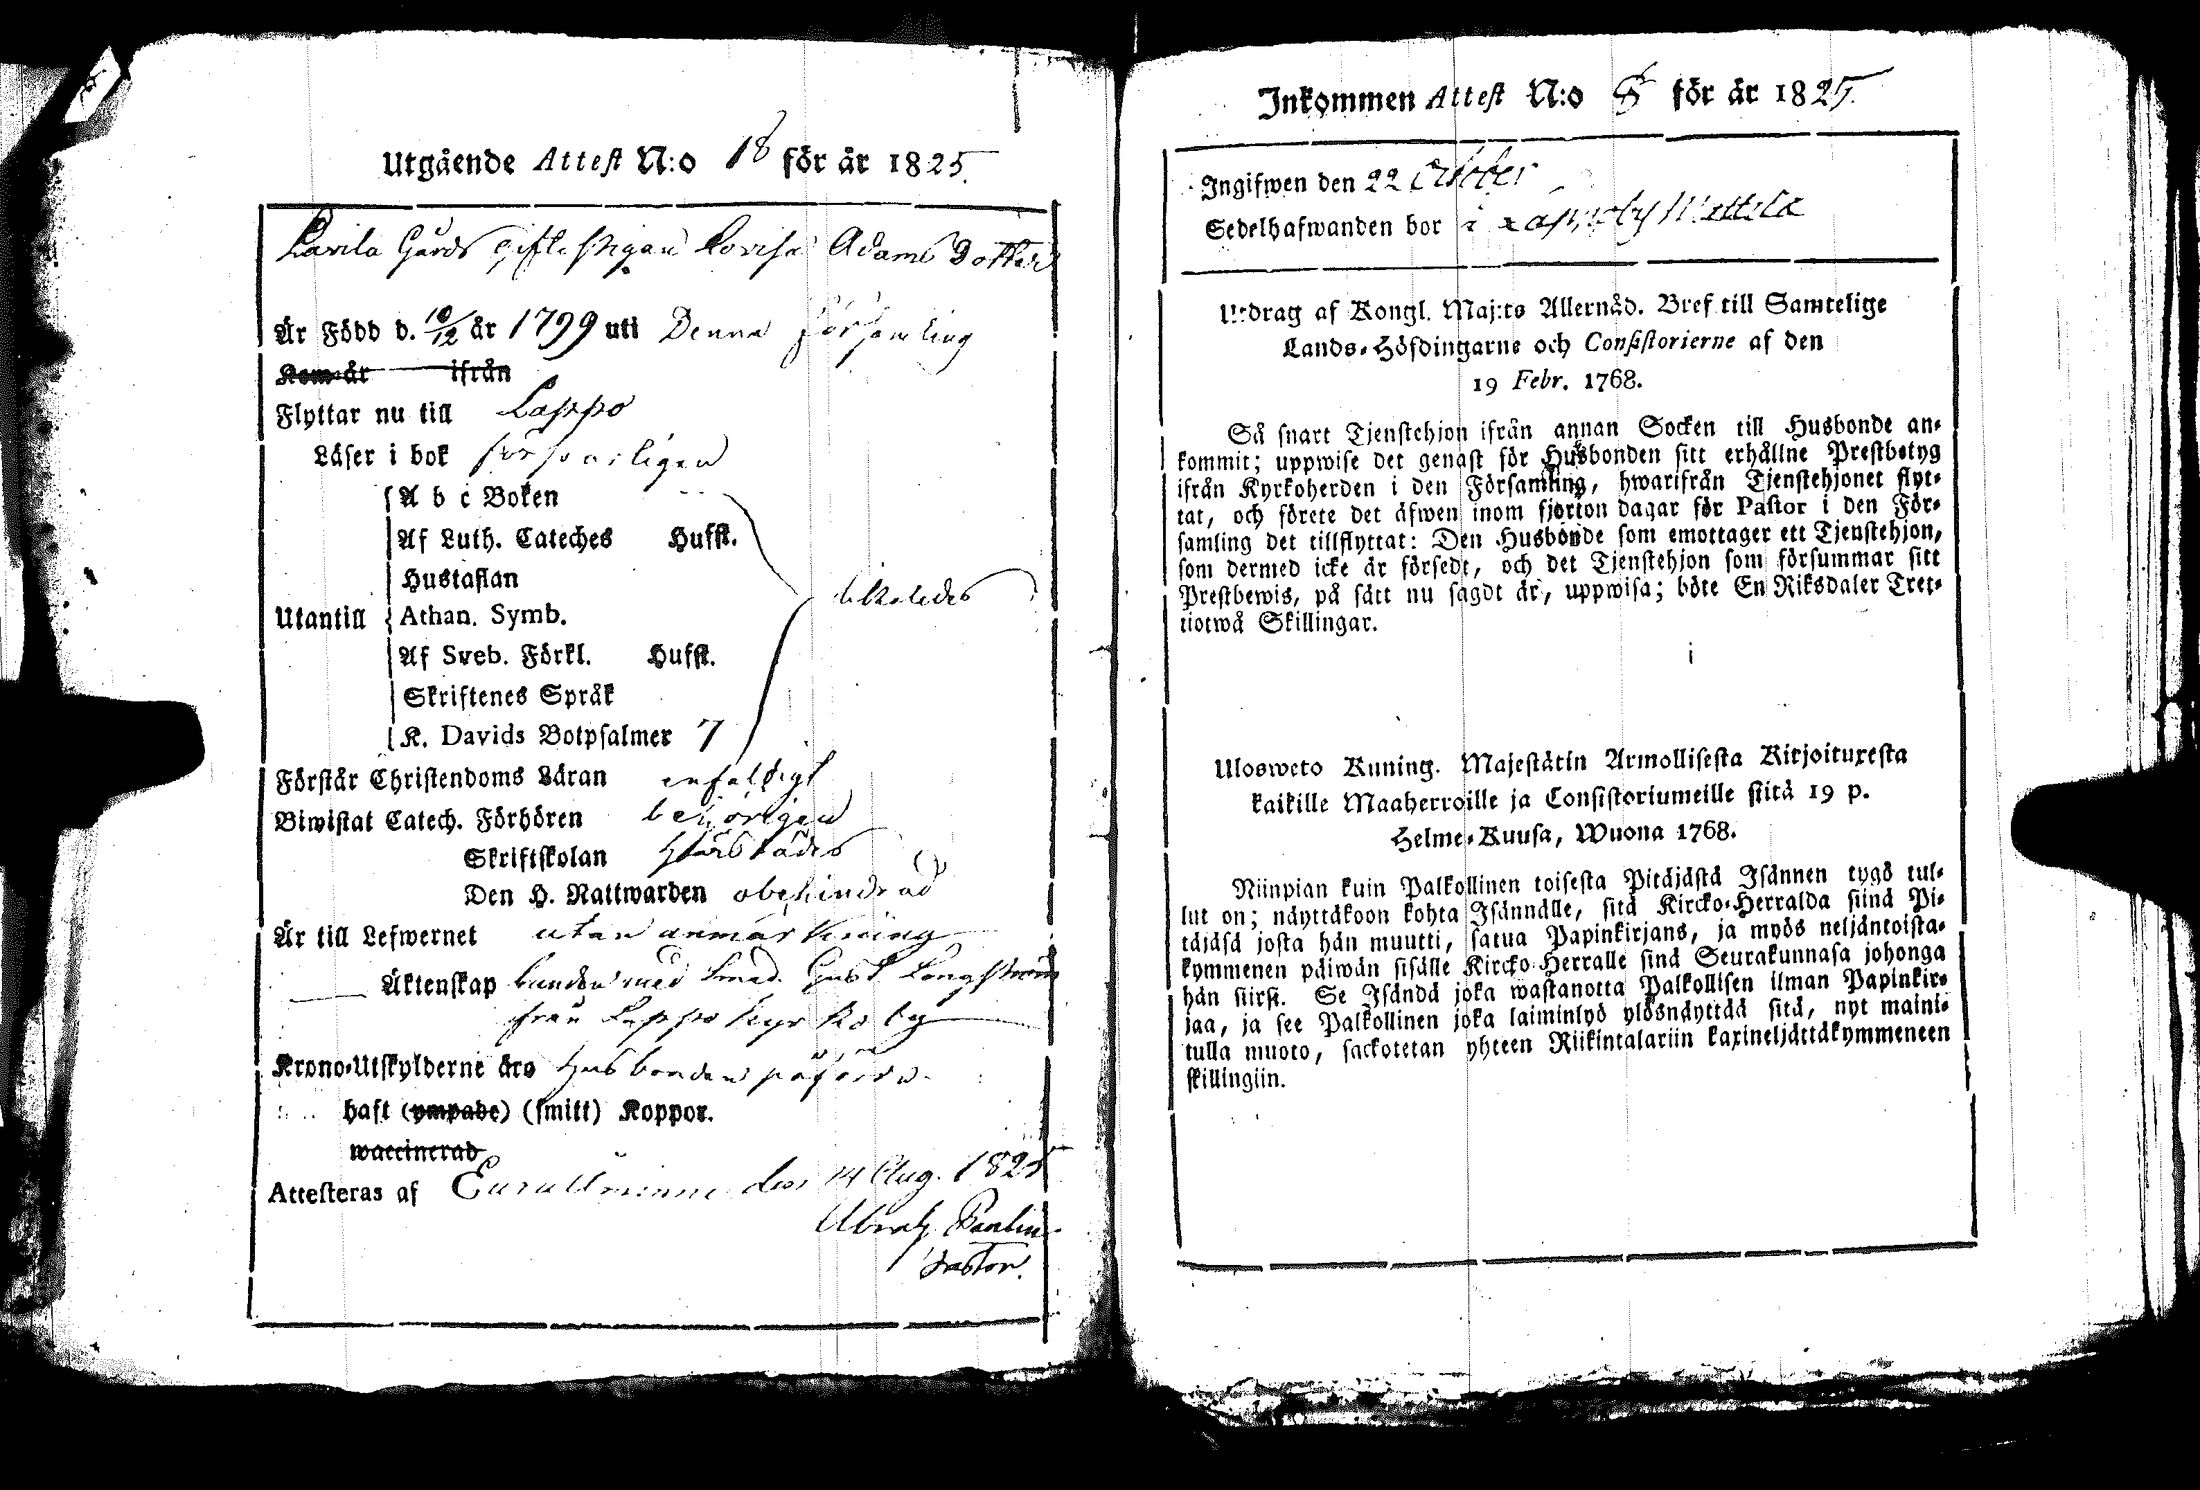 Utgående Attest N:o 18 för år 1825.
Lavila Gårds Gifte Pigan Lovisa Adams Dotter
Är Född d. 10/12 år 1799 uti Denna Församling
Kom år ifrån
Flyttar nu till Lappo
Läser i bok försvarligen
A b c Boken
Af Luth. Cateches Hufst.
Hustaflan
likaledes
Utantill Athan. Symb.
Af Sveb. Förkl. Hufst.
Skriftenes Språk
K. Davids Botpsalmer 7
Förstår Christendoms Läran enfaldigt
Biwistat Catech. Förhören behörigen
Skriftskolan Härstädes
Den H. Nattwarden obehindrad
Är till Lefwernet utan anmärkning
Äktenskap bunden med Smed. Gust. Långström
från Lappo Kyrkoby
Krono-Utskylderne äro Husbonden påförde.
haft (ympade) (smitt) Koppor.
waccinerad
Attesteras af Euraåminne den 14 Aug. 1825
Abrah. Paulin
Pastor.
Inkommen Attest N:o för år 1825.
Ingifwen den 22 October
Sedelhafwanden bor i
Utdrag af Kongl. Maj:ts Allernåd. Bref till Samtelige
Lands-Höfdingarne och Consistorierne af den
19 Febr. 1768.
Så snart Tjenstehjon ifrån annan Socken till Husbonde an-
kommit; uppwise det genast för Husbonden sitt erhållne Prestbetyg
ifrån Kyrkoherden i den Församling, hwarifrån Tjenstehjonet flyt-
tat, och förete det äfwen inom fjorton dagar för Pastor i den För-
samling det tillflyttat: Den Husbonde som emottager ett Tjenstehjon,
som dermed icke är försedt, och det Tjenstehjon som försummar sitt
Prestbewis, på sätt nu sagdt är, uppwisa; böte En Riksdaler Tret-
tiotwå Skillingar.
Ulosweto Kuning. Majestätin Armollisesta Kirjoituxesta
kaikille Maaherroille ja Consistoriumeille siitä 19 p.
Helme-Kuusa, Wuona 1768.
Niinpian kuin Palkollinen toisesta Pitäjästä Isännen tygö tul-
lut on; näyttäkoon kohta Isännälle, sitä Kircko-Herralda siinä Pi-
täjäsä josta hän muutti, saatua Papinkirjans, ja myös neljäntoista-
kymmenen päiwän sisälle Kircko-Herralle sinä Seurakunnasa johonga
hän siirsi. Se Isändä joka wastanotta Palkollisen ilman Papinkir-
jaa, ja see Palkollinen joka laiminlyö ylösnäyttää sitä, nyt maini-
tulla muoto, sackotetan yhteen Riikintalariin kaxineljättäkymmeneen
skillingiin.